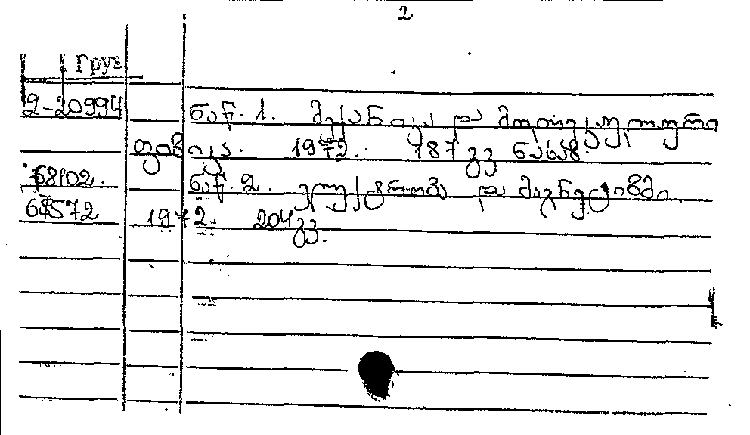 2
Груз
2-20994 ნაწ. 1. მექანიკა და მოლეკულური
ფიზიკა. 1972. 187 გვ. ნახაზ.
68102 ნაწ. 2. ელექტრობა და მაგნეტიზმი.
68572 1972. 204 გვ.